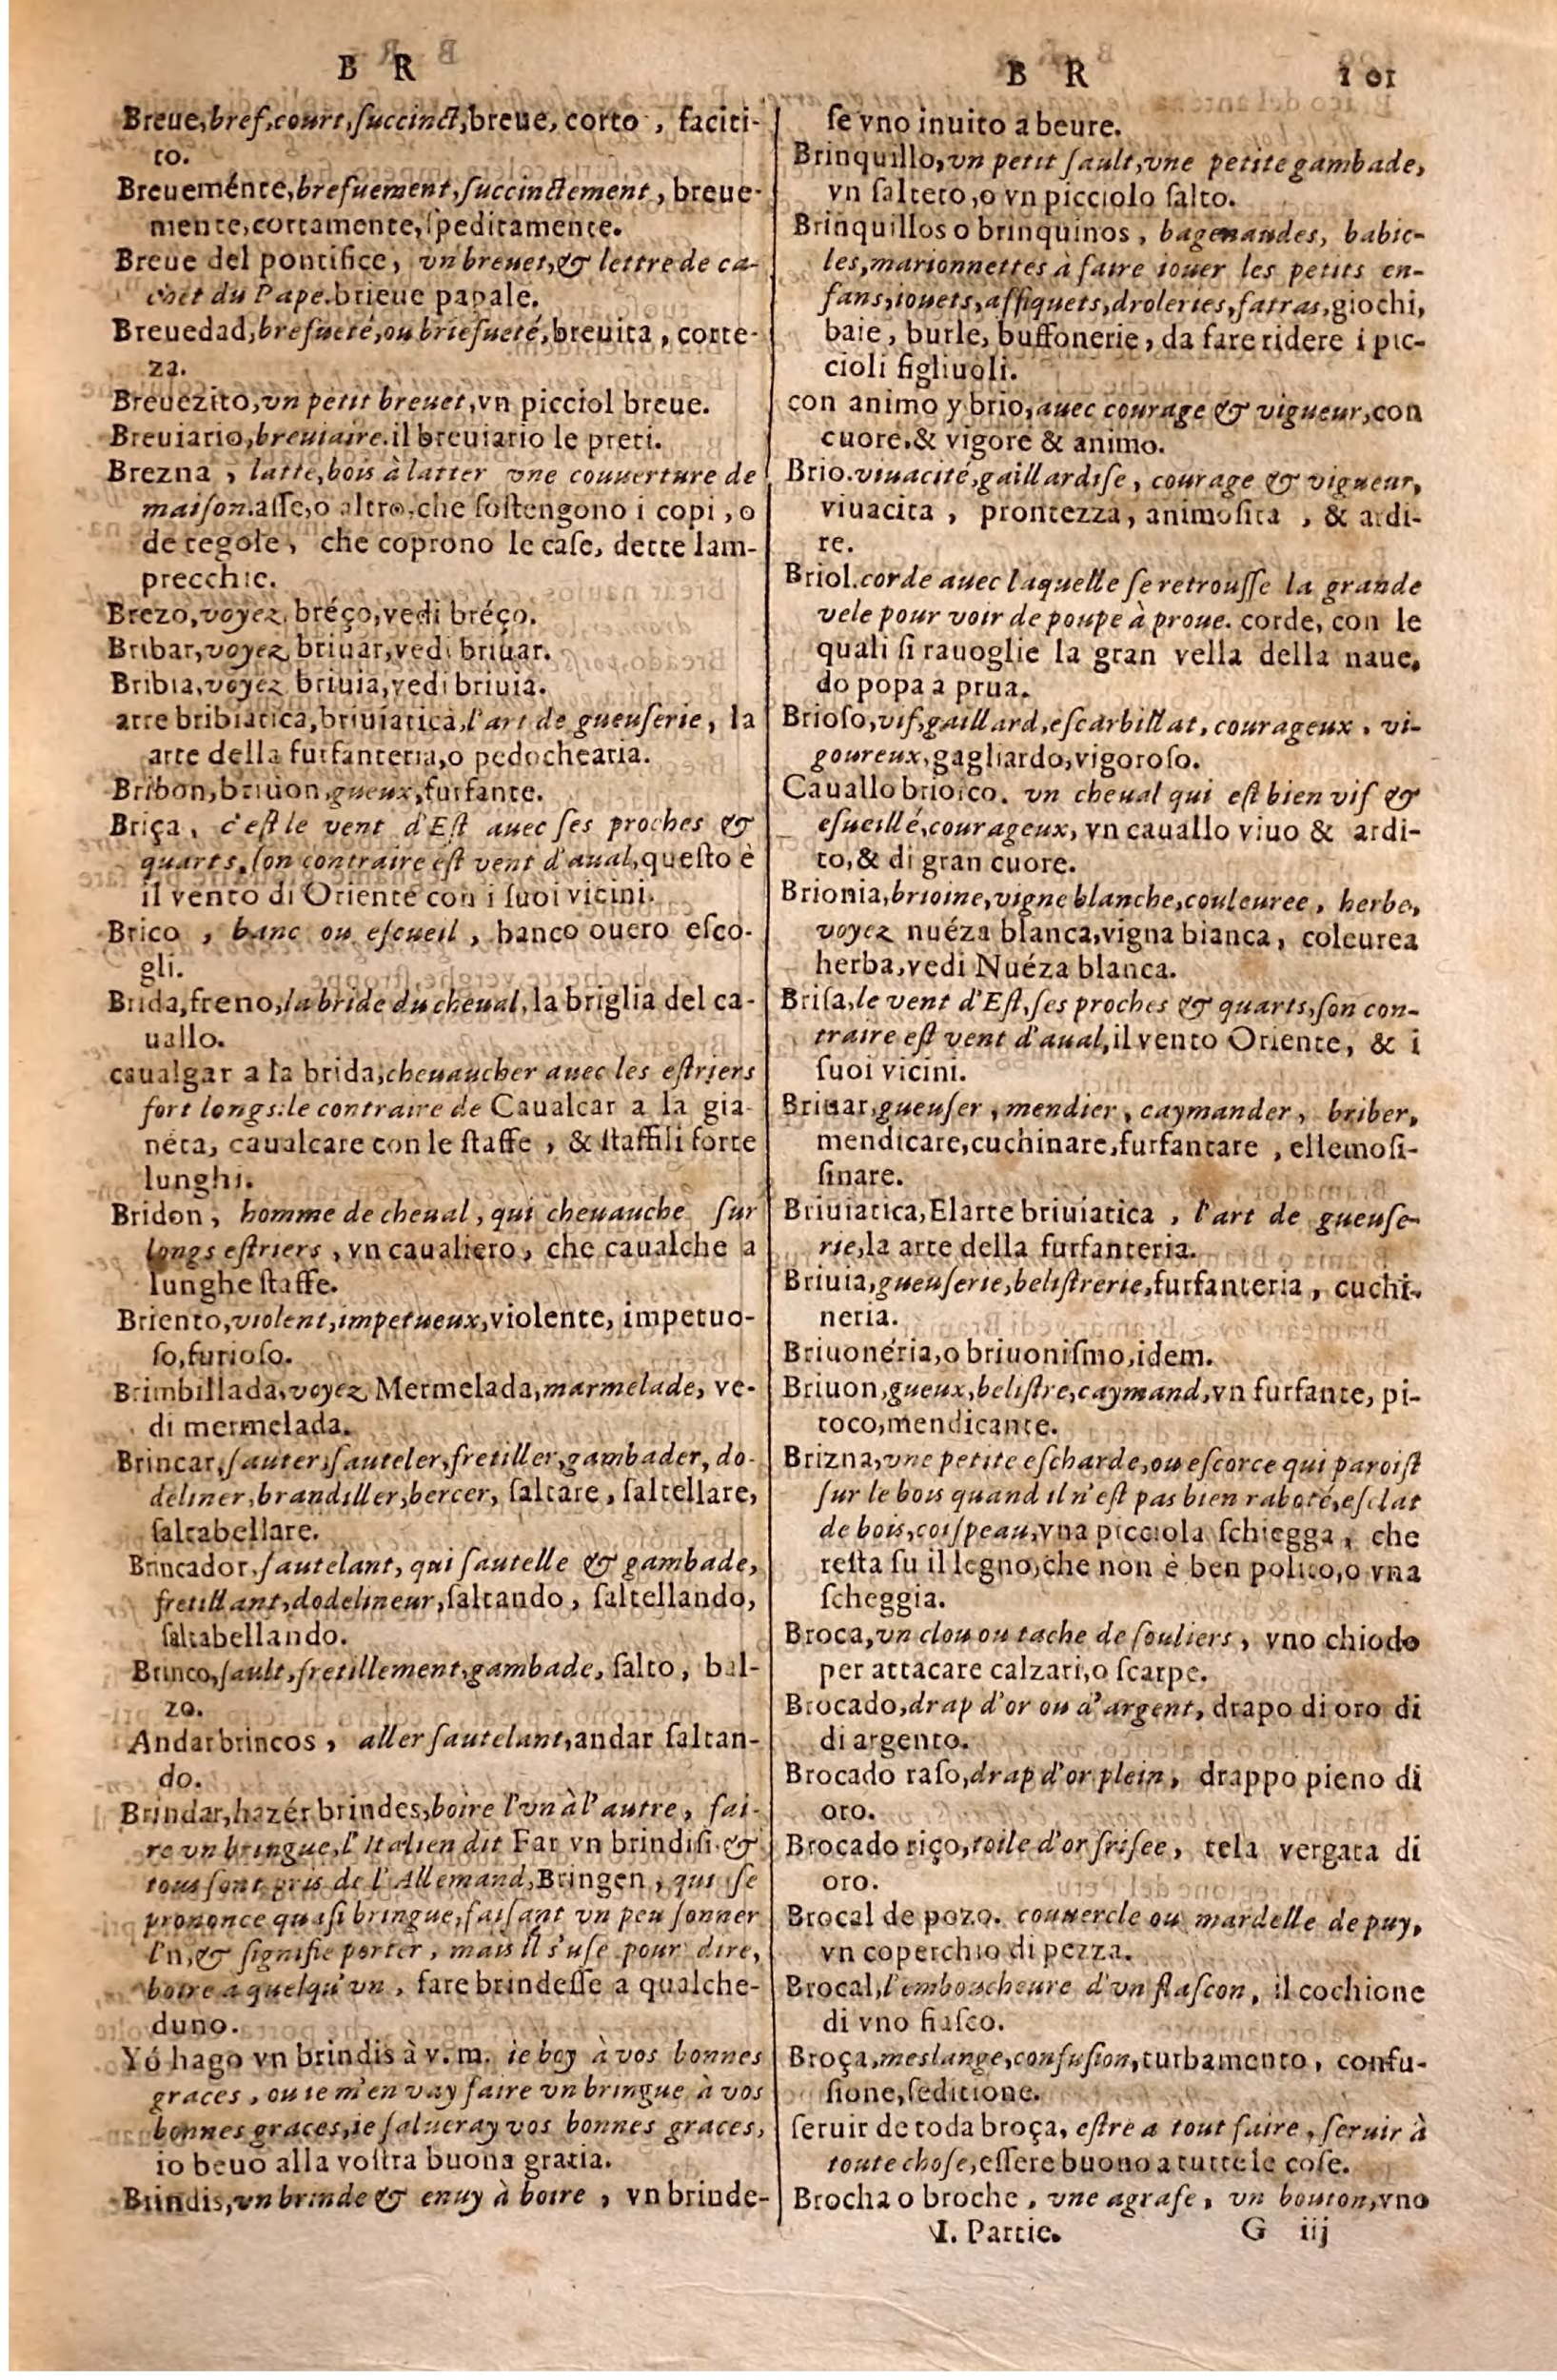 B R
Breue, bref, court, succinct, breue, corto, faciti-
to.
Breueménte, brefuement, succinctement, breue-
mente, cortamente, speditamente.
Breue del pontifice, vn breuet, & lettre de ca-
chet du Pape. brieue papale.
Breuedad, brefueté, ou briefueté, breuita, corte-
za.
Breuezito, vn petit breuet, vn picciol breue.
Breuiario, breuiaire. il breuiario le preti.
Brezna, latte, bois à latter vne couuerture de
maison. asse, o altro, che sostengono i copi, o
de tegole, che coprono le case, dette lam-
precchie.
Brezo, voyez bréço, vedi bréço.
Bribar, voyez briuar, vedi briuar.
Bribia, voyez briuia, vedi briuia.
arte bribiatica, briuiatica, l'art de gueuserie, la
arte della furfanteria, o pedochearia.
Bribon, briuon, gueux, furfante.
Briça, c'est le vent d'Est auec ses proches &
quarts, son contraire est vent d'aual, questo è
il vento di Oriente con i suoi vicini.
Brico, banc ou escueil, banco ouero esco-
gli.
Brida, freno, la bride du cheual, la briglia del ca-
uallo.
caualgar a la brida, cheuaucher auec les estriers
fort longs: le contraire de Caualcar a la gia-
neta, caualcare con le staffe, & staffili forte
lunghi.
Bridon, homme de cheual, qui cheuauche sur
longs estriers, vn caualiero, che caualche a
lunghe staffe.
Briento, violent, impetueux, violente, impetuo-
so, furioso.
Brimbillada, voyez Mermelada, marmelade, ve-
di mermelada.
Brincar, sauter, sauteler, fretiller, gambader, do-
deliner, brandiller, bercer, saltare, saltellare,
saltabellare.
Brincador, sautelant, qui sautelle & gambade,
fretillant, dodelineur, saltando, saltellando,
saltabellando.
Brinco, sault, fretillement, gambade, salto, bal-
zo.
Andar brincos, aller sautelant, andar saltan-
do.
Brindar, hazér brindes, boire l'vn à l'autre, fai-
re vn bringue, l'Italien dit Far vn brindisi &
tous sont pris de l'Allemand, Bringen, qui se
prononce quasi bringue, faisant vn peu sonner
l'n, & signifie porter, mais il s'use pour dire,
boire a quelqu'vn, fare brindesse a qualche-
duno.
Yó hago vn brindis à v. m. ie boy à vos bonnes
graces, ou ie m'en vay faire vn bringue à vos
bonnes graces, ie salueray vos bonnes graces,
io beuo alla vostra buona gratia.
Brindis, vn brinde & enuy à boire, vn brinde-
B R 101
se vno inuito a beure.
Brinquillo, vn petit sault, vne petite gambade,
vn salteto, o vn picciolo salto.
Brinquillos o brinquinos, bagenaudes, babio-
les, marionnettes à faire iouer les petits en-
fans, iouets, affiquets, droleries, fatras, giochi,
baie, burle, buffonerie, da fare ridere i pic-
cioli figliuoli.
con animo y brio, auec courage & vigueur, con
cuore, & vigore & animo.
Brio. viuacité, gaillardise, courage & vigueur,
viuacita, prontezza, animosita, & ardi-
re.
Briol. corde auec laquelle se retrousse la grande
vele pour voir de poupe à proue. corde, con le
quali si rauoglie la gran vella della naue,
do popa a prua.
Brioso, vif, gaillard, escarbillat, courageux, vi-
goureux, gagliardo, vigoroso.
Cauallo brioico. vn cheual qui est bien vif &
esueillé, courageux, vn cauallo viuo & ardi-
to, & di gran cuore.
Brionia, brioine, vigne blanche, couleuree, herbe,
voyez nuéza blanca, vigna bianca, coleurea
herba, vedi Nuéza blanca.
Brisa, le vent d'Est, ses proches & quarts, son con-
traire est vent d'aual, il vento Oriente, & i
suoi vicini.
Briuar, gueuser, mendier, caymander, briber,
mendicare, cuchinare, furfantare, ellemosi-
sinare.
Briuiatica, El arte briuiatica, l'art de gueuse-
rie, la arte della furfanteria.
Briuia, gueuserie, belistrerie, furfanteria, cuchi-
neria.
Briuonéria, o briuonismo, idem.
Briuon, gueux, belistre, caymand, vn furfante, pi-
toco, mendicante.
Brizna, vne petite escharde, ou escorce qui paroist
sur le bois quand il n'est pas bien raboté, esclat
de bois, coispeau, vna picciola schiegga, che
resta su il legno, che non è ben polito, o vna
scheggia.
Broca, vn clou ou tache de souliers, vno chiodo
per attacare calzari, o scarpe.
Brocado, drap d'or ou d'argent, drapo di oro di
di argento.
Brocado raso, drap d'or plein, drappo pieno di
oro.
Brocado riço, toile d'or frisee, tela vergata di
oro.
Brocal de pozo. couuercle ou mardelle de puy,
vn coperchio di pezza.
Brocal, l'emboucheure d'vn flascon, il cochione
di vno fiasco.
Broça, meslange, confusion, turbamento, confu-
sione, seditione.
seruir de toda broça, estre a tout faire, seruir à
toute chose, essere buono a tutte le cose.
Brocha o broche, vne agrafe, vn bouton, vno
I. Partie. G iij